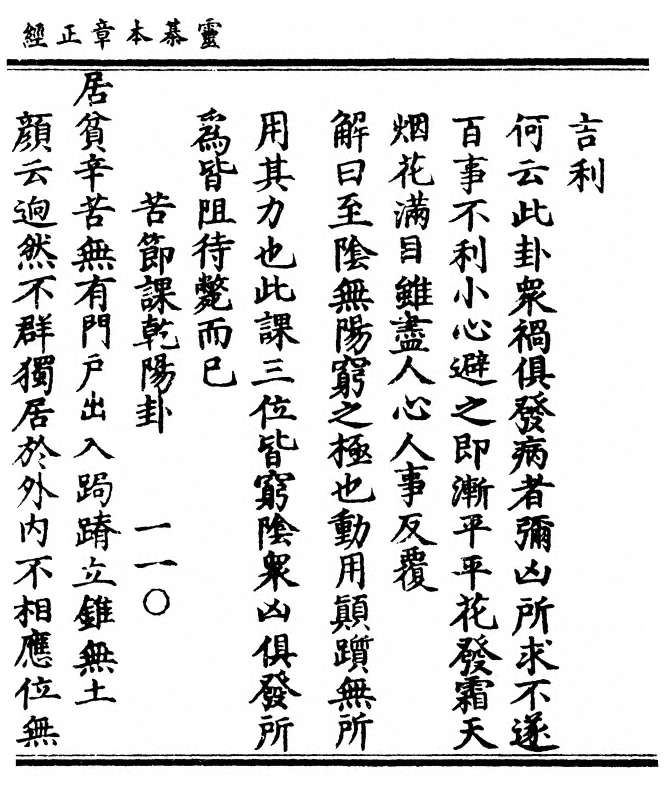 靈棊本章正經
吉利
何云此卦衆禍俱發病者彌凶所求不遂
百事不利小心避之即漸平平花發霜天
烟花滿目雖盡人心人事反覆
解曰至陰無陽窮之極也動用顛躓無所
用其力也此課三位皆窮陰衆凶俱發所
爲皆阻待斃而已
苦節課乾陽卦 一一〇
居貧辛苦無有門戶出入跼蹐立錐無土
顔云逈然不群獨居於外内不相應位無